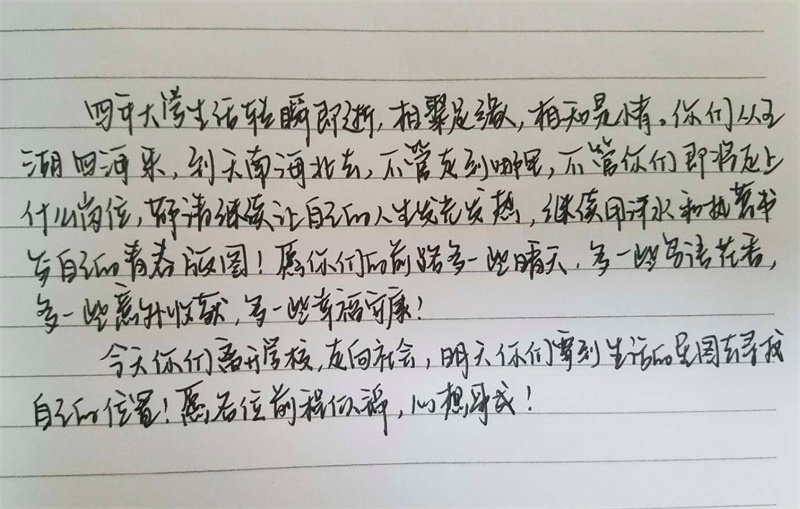 四年大学生活转瞬即逝，相聚是缘，相知是情。你们从五
湖四海来，到天南海北去，不管走到哪里，不管你们即将走上
什么岗位，都请继续让自己的人生发光发热，继续用汗水和执著书
写自己的青春版图！愿你们的前路多一些晴天，多一些鸟语花香，
多一些意外收获，多一些幸福安康！
今天你们离开学校，走向社会，明天你们要到生活的版图去寻找
自己的位置！愿各位前程似锦，心想事成！